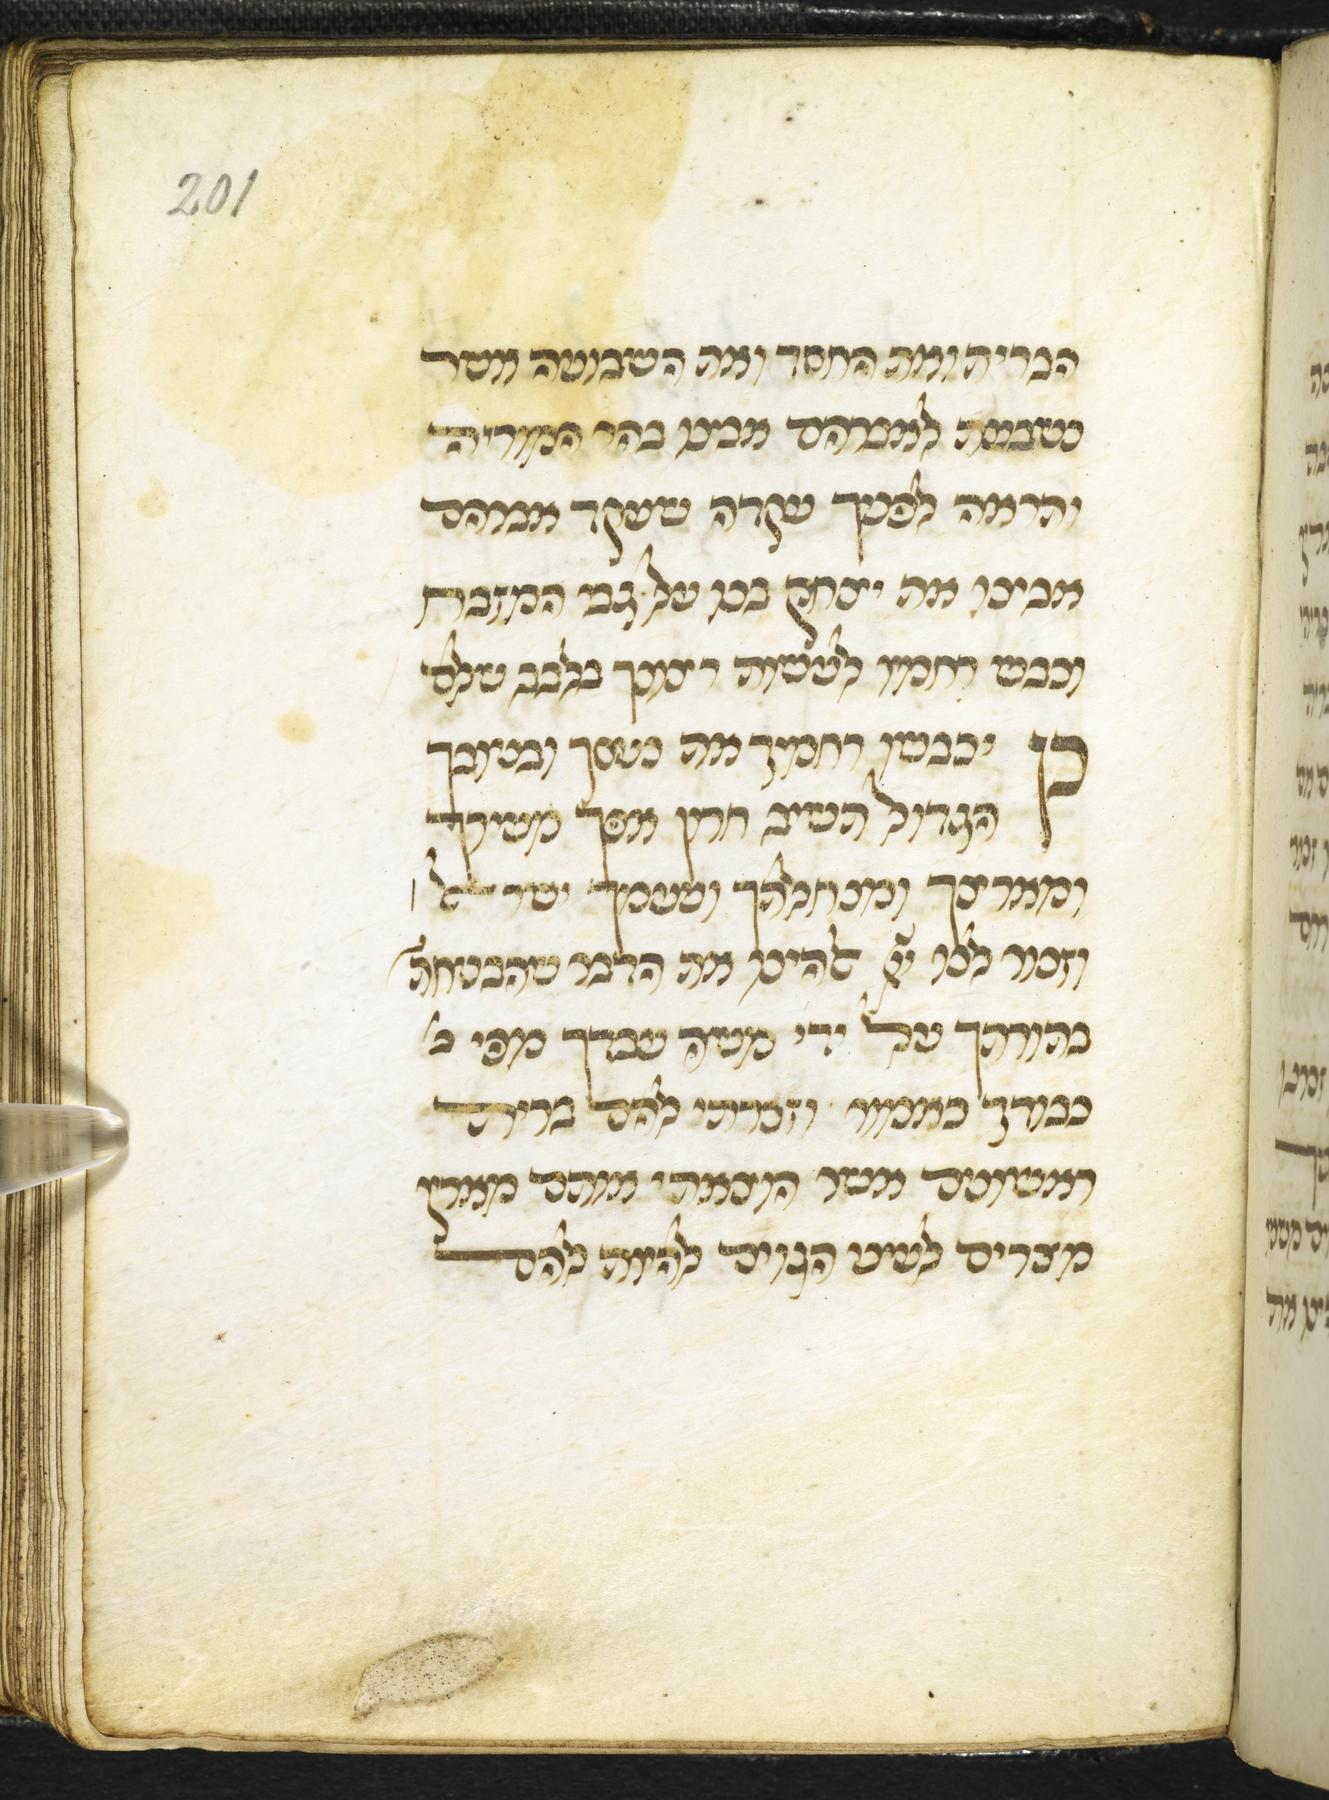 201
הברית ואת החסד ואת השבועה אשר
נשבעת לאברהם אבינו בהר המוריה
ותראה לפניך עקדה שעקד אברהם
אבינו את יצחק בנו על גב המזבח
וכבש רחמיו לעשות רצונך בלבב שלם
כן יכבשו רחמיך את כעסך ובטובך
הגדול השיב חרון אפך מעירך
ומארצך ומנחלתך ומעמך ישראל
וזכור לנו יי אלהינו את הדבר שהבטחת
בתורתך על ידי משה עבדך מפי כ
כבודך כאמור וזכרתי להם ברית
ראשונים אשר הוצאתי אותם מארץ
מצרים לעיני הגוים להיות להם